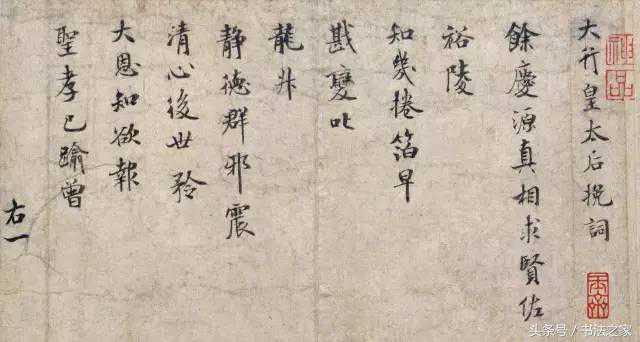 大行皇太后挽詞
餘慶源真相求賢佐
裕陵
知幾捲箔早
戡變叱
龍升
静德群邪震
清心後世矜
大恩知欲報
聖孝已踰曾
右一
神品
头条号 / 书法之家